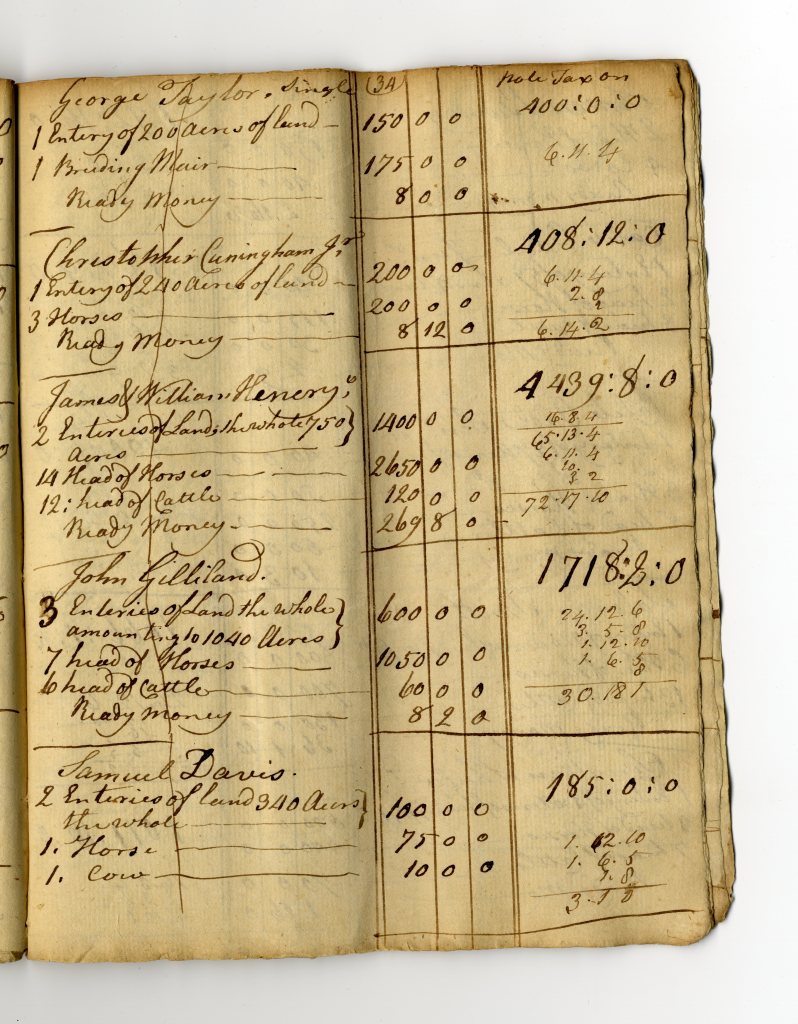 George Taylor. Single (34) Pole Tax on
1 Entery of 200 Acres of land 150 0 0 400:0:0
1 Bruding Mair 175 0 0 6.11.4
Ready Money 8 0 0
Christopher Cuningham Jr 408:12:0
1 Entery of 240 Acres of land 200 0 0 6.11.4
3 Horses 200 0 0 2.8
2
Ready Money 8 12 0 6.14.2
James & William Henerys 4439:8:0
2 Enteries of Land, the whole 750} 1400 0 0 16.8.4
Acres 65.13.4
14 Head of Horses 2650 0 0 6.11.4
10.
3 2
12: head of Cattle 120 0 0 72.17.10
Ready Money 269 8 0
John Gilliland. 1718:2:0
3 Enteries of Land the whole} 600 0 0 24.12.6
amounting to 1040 Acres} 3.5.8
1.12.10
7 head of Horses 1050 0 0 1.6.5
8
6 head of Cattle 60 0 0 30.18 1
Ready Money 8 2 0
Samuel Davis. 185:0:0
2 Enteries of land 340 Acres} 100 0 0
the whole
1. Horse 75 0 0 1.12.10
1. Cow 10 0 0 1.6.5
1.8